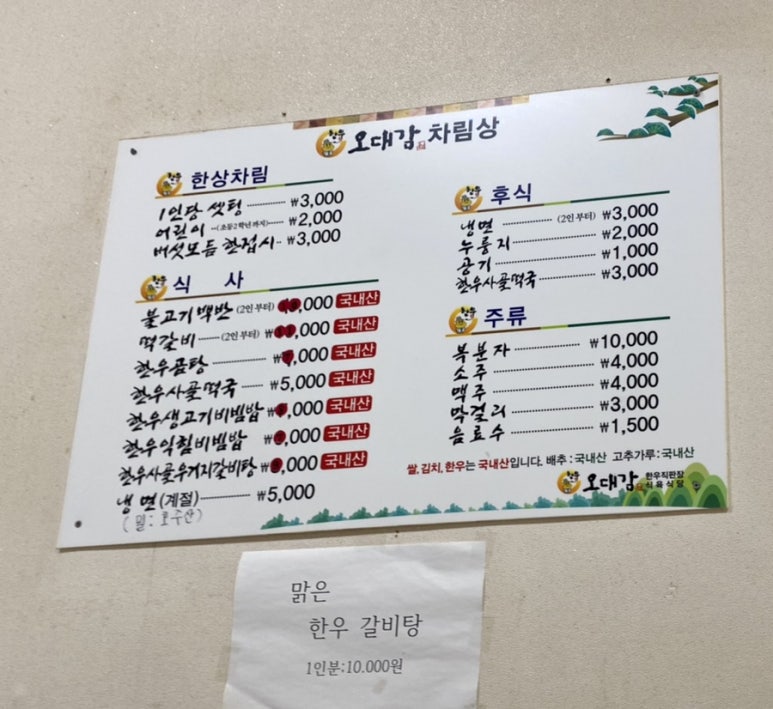 한우 오대감 차림상
한우 한상차림
1인당 셋팅 ₩3,000
어린이 (초등2학년까지) ₩2,000
버섯모듬 한접시 ₩3,000
한우 식 사
불고기백반 (2인 부터) ,000 국내산
떡갈비 (2인 부터) ₩ ,000 국내산
한우곰탕 ₩ ,000 국내산
한우사골떡국 ₩5,000 국내산
한우생고기비빔밥 ₩ ,000 국내산
한우익힘비빔밥 ₩ ,000 국내산
한우사골우거지갈비탕 ₩ ,000 국내산
냉면 (계절) ₩5,000
(밀: 호주산)
한우 후식
냉면 (2인 부터) ₩3,000
누룽지 ₩2,000
공기 ₩1,000
한우사골떡국 ₩3,000
한우 주류
복분자 ₩10,000
소주 ₩4,000
맥주 ₩4,000
막걸리 ₩3,000
음료수 ₩1,500
쌀,김치,한우는 국내산입니다. 배추 : 국내산 고추가루 : 국내산
한우 오대감 한우직판장
식육식당
맑은
한우 갈비탕
1인분:10.000원